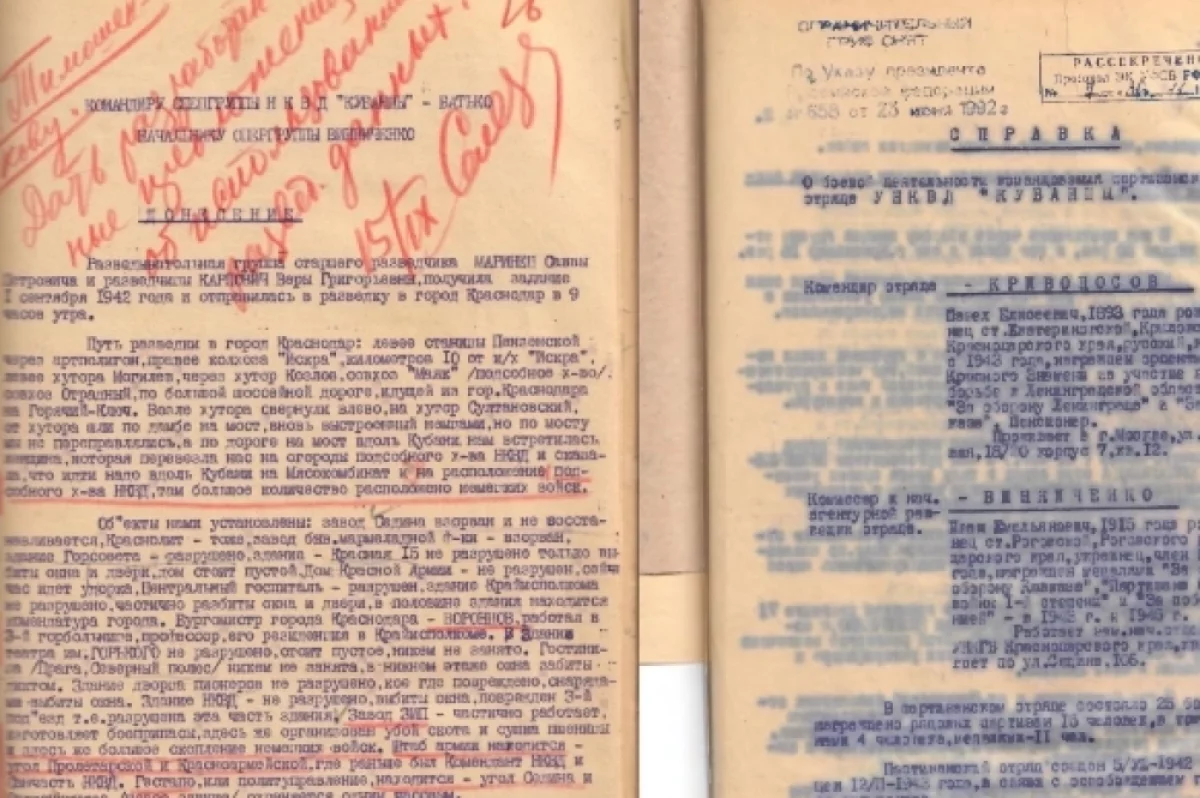 Тимошен-
кову.
Дать разработан
ные
об использовании
развед. данных.
15/IX
26
КОМАНДИРУ СПЕЦГРУППЫ Н К В Д "КУБАНЦЫ" - БАТЬКО
НАЧАЛЬНИКУ ОПЕРГРУППЫ ВИННИЧЕНКО
ДОНЕСЕНИЕ
Разведывательная группа старшего разведчика МАРИНЕН
Петровича и разведчицы КАРПОВИЧ Веры Григорьевны, получила задание
I сентября 1942 года и отправилась в разведку в город Краснодар в 9
часов утра.
Путь разведки в город Краснодар: левее станицы Пензенской
через артполигон, правее колхоза "Искра", километров 10 от к/х "Искра",
левее хутора Могилев, через хутор Козлов, совхоз "Маяк" /подсобное х-во/.
совхоз Отрадный, по большой шоссейной дороге, идущей из гор. Краснодара
на Горячий-Ключ. Возле хутора свернули влево, на хутор Султановский,
от хутора шли по дамбе на мост, вновь выстроенный немцами, но по мосту
мы не переправлялись, а по дороге на мост вдоль Кубани нам встретилась
женщина, которая перевезла нас на огороды подсобного х-ва НКВД и сказа-
ла, что идти надо вдоль Кубани на Мясокомбинат и на расположение под-
собного х-ва НКВД, там большое количество расположено немецких войск.
Об"екты нами установлены: завод Седина взорван и не восста-
навливается, Краснолит - тоже, завод бив. мармеладной ф-ки - взорван,
здание Горсовета - разрушено, здание - Красная 15 не разрушено только вы-
биты окна и двери, дом стоит пустой, Дом Красной Армии - не разрушен, сейч
час идет уборка, Центральный госпиталь - разрушен, здание Крайисполкома
не разрушено, частично разбиты окна и двери, в половине здания находится
комендатура города. Бургомистр города Краснодара - ВОРОНЦОВ, работал в
3-й горбольнице, профессор, его резиденция в Крайисполкоме. В Здание
театра им. ГОРЬКОГО не разрушено, стоит пустое, никем не занято. Гостини-
ца /Прага, Северный полюс/ никем не занята, в нижнем этаже окна забиты
Здание дворца пионеров не разрушено, кое где повреждено, снаряда-
ми выбиты окна. Здание НКВД - не разрушено, выбиты окна, поврежден 3-й
под"езд т.е. разрушена эта часть здания, Завод ЗИП - частично работает,
изготовляет боеприпасы, здесь же организован убой скота и сушка пшеницы
и здесь же большое скопление немецких войск. Штаб армии находится -
угол Пролетарской и Красноармейской, где раньше был Комендант НКВД и
НКВД. Гестапо, или политуправление, находится - угол Седина и
охраняется одним часовым.
ОГРАНИЧИТЕЛЬНЫЙ
ГРИФ СНЯТ
По Указу президента
Российской федерации
№ 658 от 23 июня 1992 г
РАССЕКРЕЧЕНО
№
СПРАВКА
О боевой деятельности командования партизанск
отряда УНКВД "КУБАНЦЫ".
Командир отряда - КРИВОНОСОВ
Павел Елисеевич, 1893 года рож
нец ст. Екатериновской,
Краснодарского края, русский,
с 1943 года, награжден орденом
Красного Знамени за участие в
борьбе в Ленинградской област
"За оборону Ленинграда" и "За
Пенсионер.
Проживает в г. Москве, ул.
18/20 корпус 7, кв. 12.
Комиссар и нач. - ВИННИЧЕНКО
агентурной раз-
ведки отряда.
Иван Емельянович, 1915 года р
нец ст. Роговской, Роговского р
дарского края, украинец, член
года, награжден медалями "За
оборону Кавказа", "Партизану
войны I-й степени" и "За по
нией" - в 1943 г. и 1945 г.
Работает нач. от
УМГБ Краснодарского края,
ет по ул. Седина, 106.
В партизанском отряде состояло 25
награждено рядовых партизан 15 человек, в
ми 4 человека, медалями-II чел.
Партизанский отряд создан 5/ -1942
ции 12/II-1943 года, в связи с освобождением